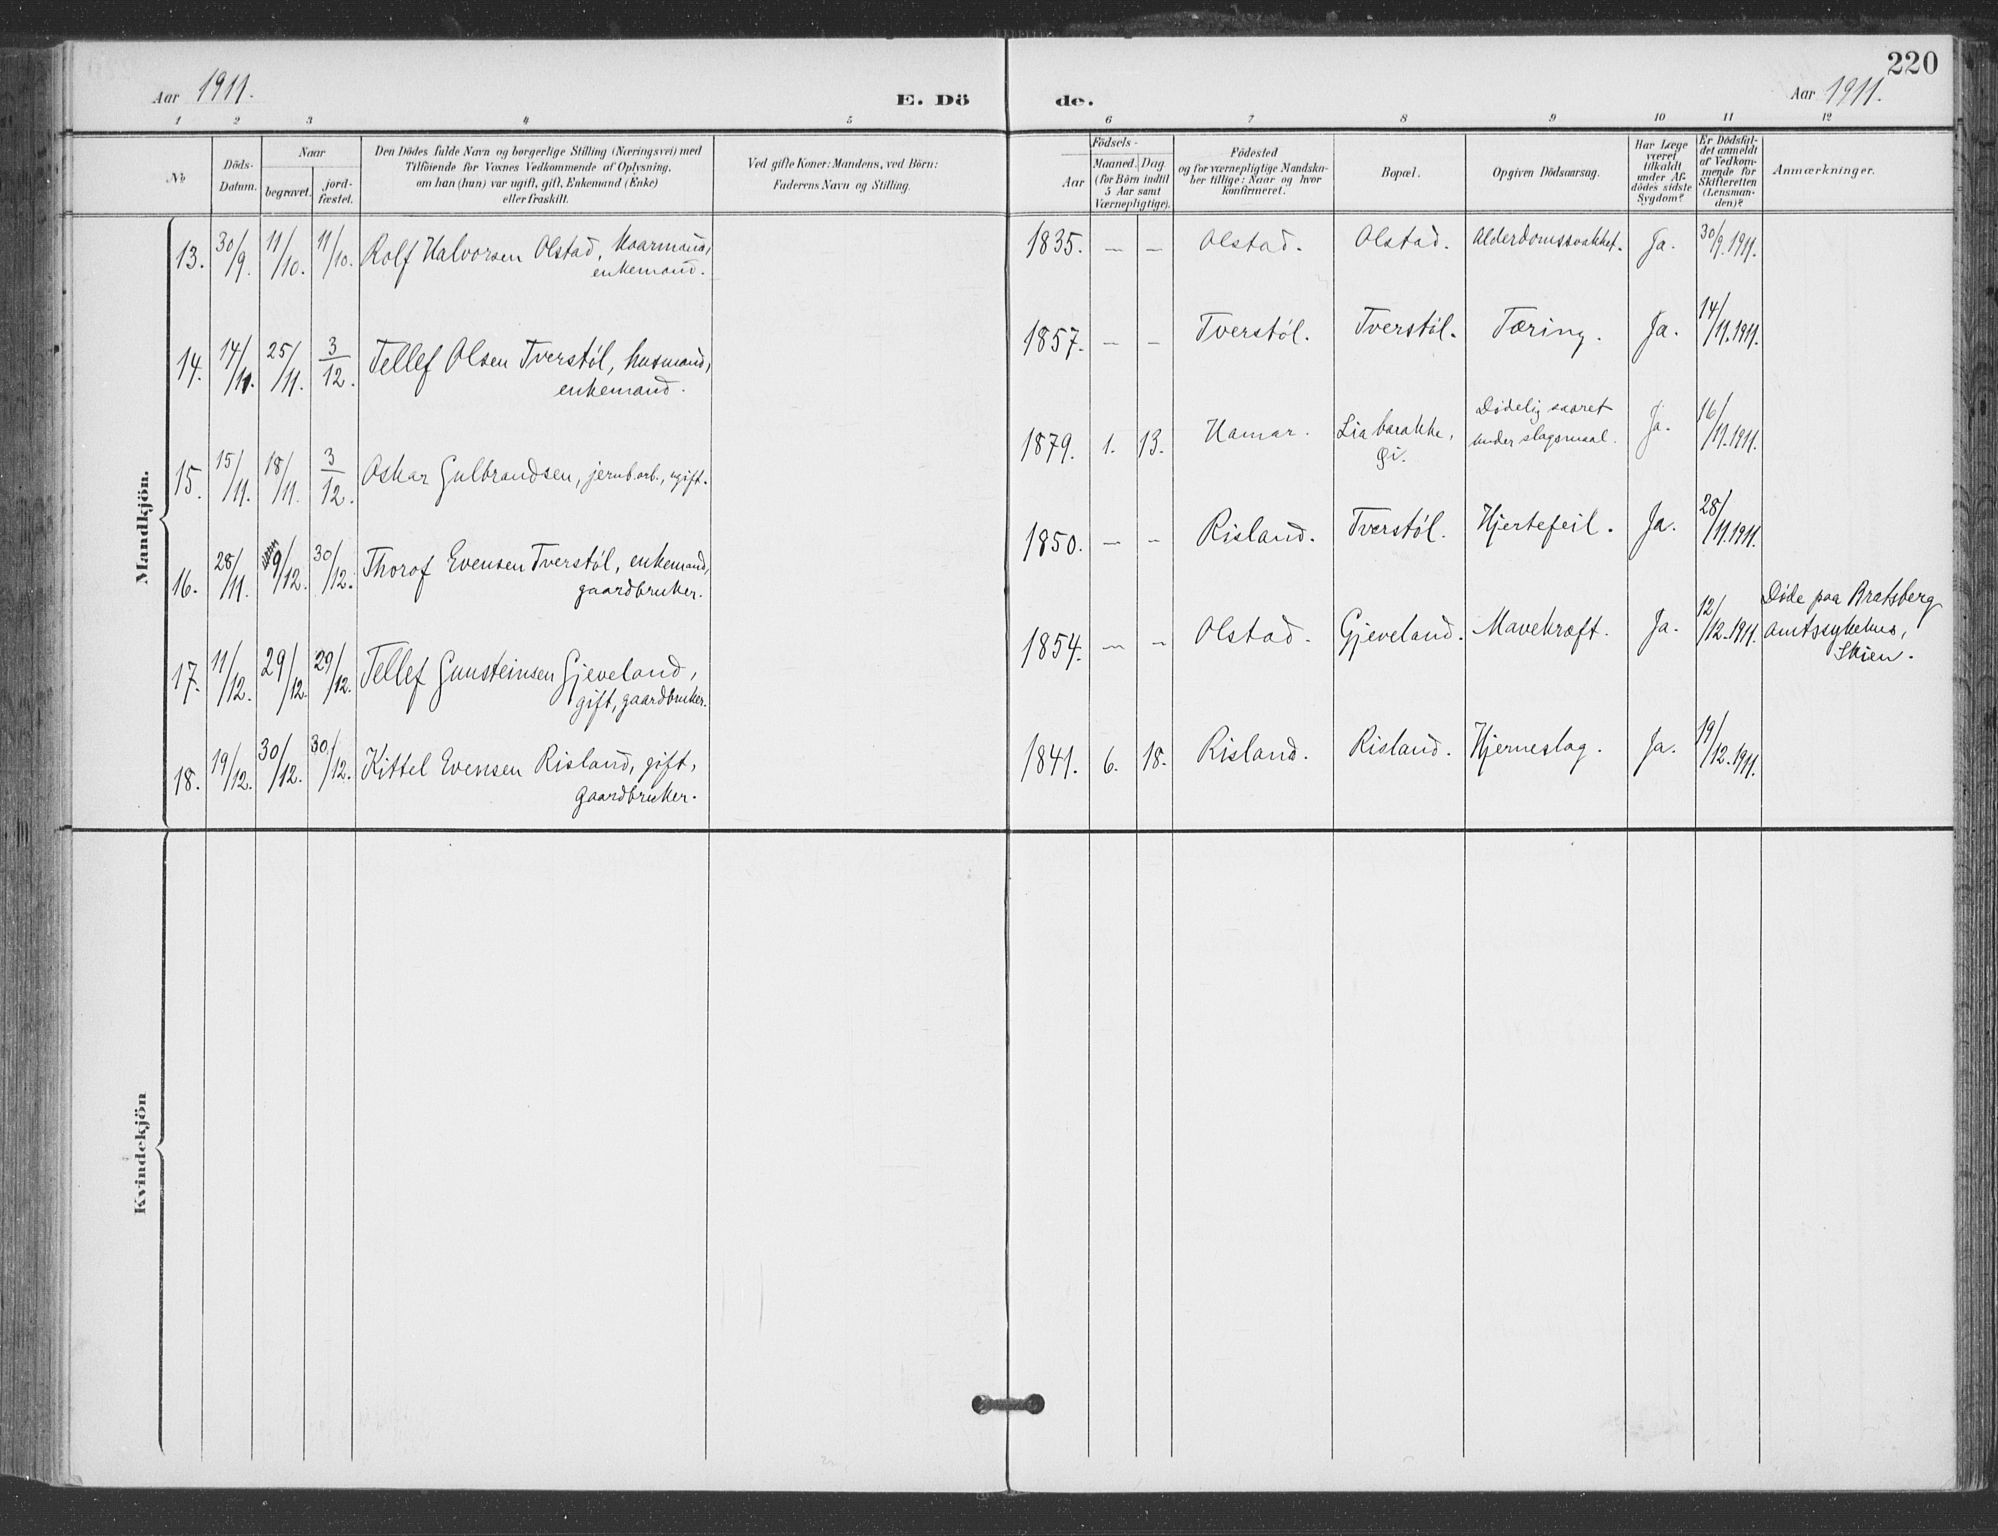 220
Aar 1911.
E. Dö
de.
Aar 1911.
1 2 3 4 5 6 7 8 9 10 11 12
No
Döds-
Datum.
Naar
begravet.
jord-
fæstet.
Den Dödes fulde Navn og borgerlige Stilling (Næringsvei) med
Tilföiende for Voxnes Vedkommende af Oplysning,
om han (hun) var ugift, gift, Enkemand (Enke)
eller fraskilt.
Ved gifte Koner: Mandens, ved Börn:
Faderens Navn og Stilling.
Födsels-
Aar
Maaned. Dag
(for Börn indtil
5 Aar samt
Værnepligtige).
Födested
og for værnepligtige Mandska-
ber tillige: Naar og hvor
konfirmeret.
Bopæl.
Opgiven Dödsaarsag.
Har Læge
været
tilkaldt
under Af-
dödes sidste
Sygdom?
Er Dödsfal-
det anmeldt
af Vedkom-
mende for
Skifteretten
(Lensman-
den)?
Anmærkninger.
Mandkjön.
13. 30/9. 11/10. 11/10. Rolf Halvorsen Olstad, kaarmand,
enkemand.
1835. — — Olstad. Olstad. Alderdomssvakhet. Ja. 30/9.1911.
14. 14/11. 25/11. 3/12. Tellef Olsen Tverstöl, husmand,
enkemand.
1857. — — Tverstöl. Tverstöl. Tæring. Ja. 14/11.1911.
15. 15/11. 18/11. 3/12. Oskar Gulbrandsen, jernb.arb., ugift.
1879. 1. 13. Hamar. Lia barakke, Dødelig saaret
under slagsmaal. Ja. 16/11.1911.
16. 28/11. 9/12. 30/12. Thorof Evensen Tverstöl, enkemand,
gaardbruker.
1850. — — Risland. Tverstöl. Hjertefeil. Ja. 28/11.1911.
17. 11/12. 29/12. 29/12. Tellef Gunsteinsen Gjeveland,
gift, gaardbruker.
1854. — — Olstad. Gjeveland. Mavekræft. Ja. 12/12.1911. Døde paa Bratsberg
amtssykehus,
Skien.
18. 19/12. 30/12. 30/12. Kittel Evensen Risland, gift,
gaardbruker.
1841. 6. 18. Risland. Risland. Hjerneslag. Ja. 19/12.1911.
Kvindekjön